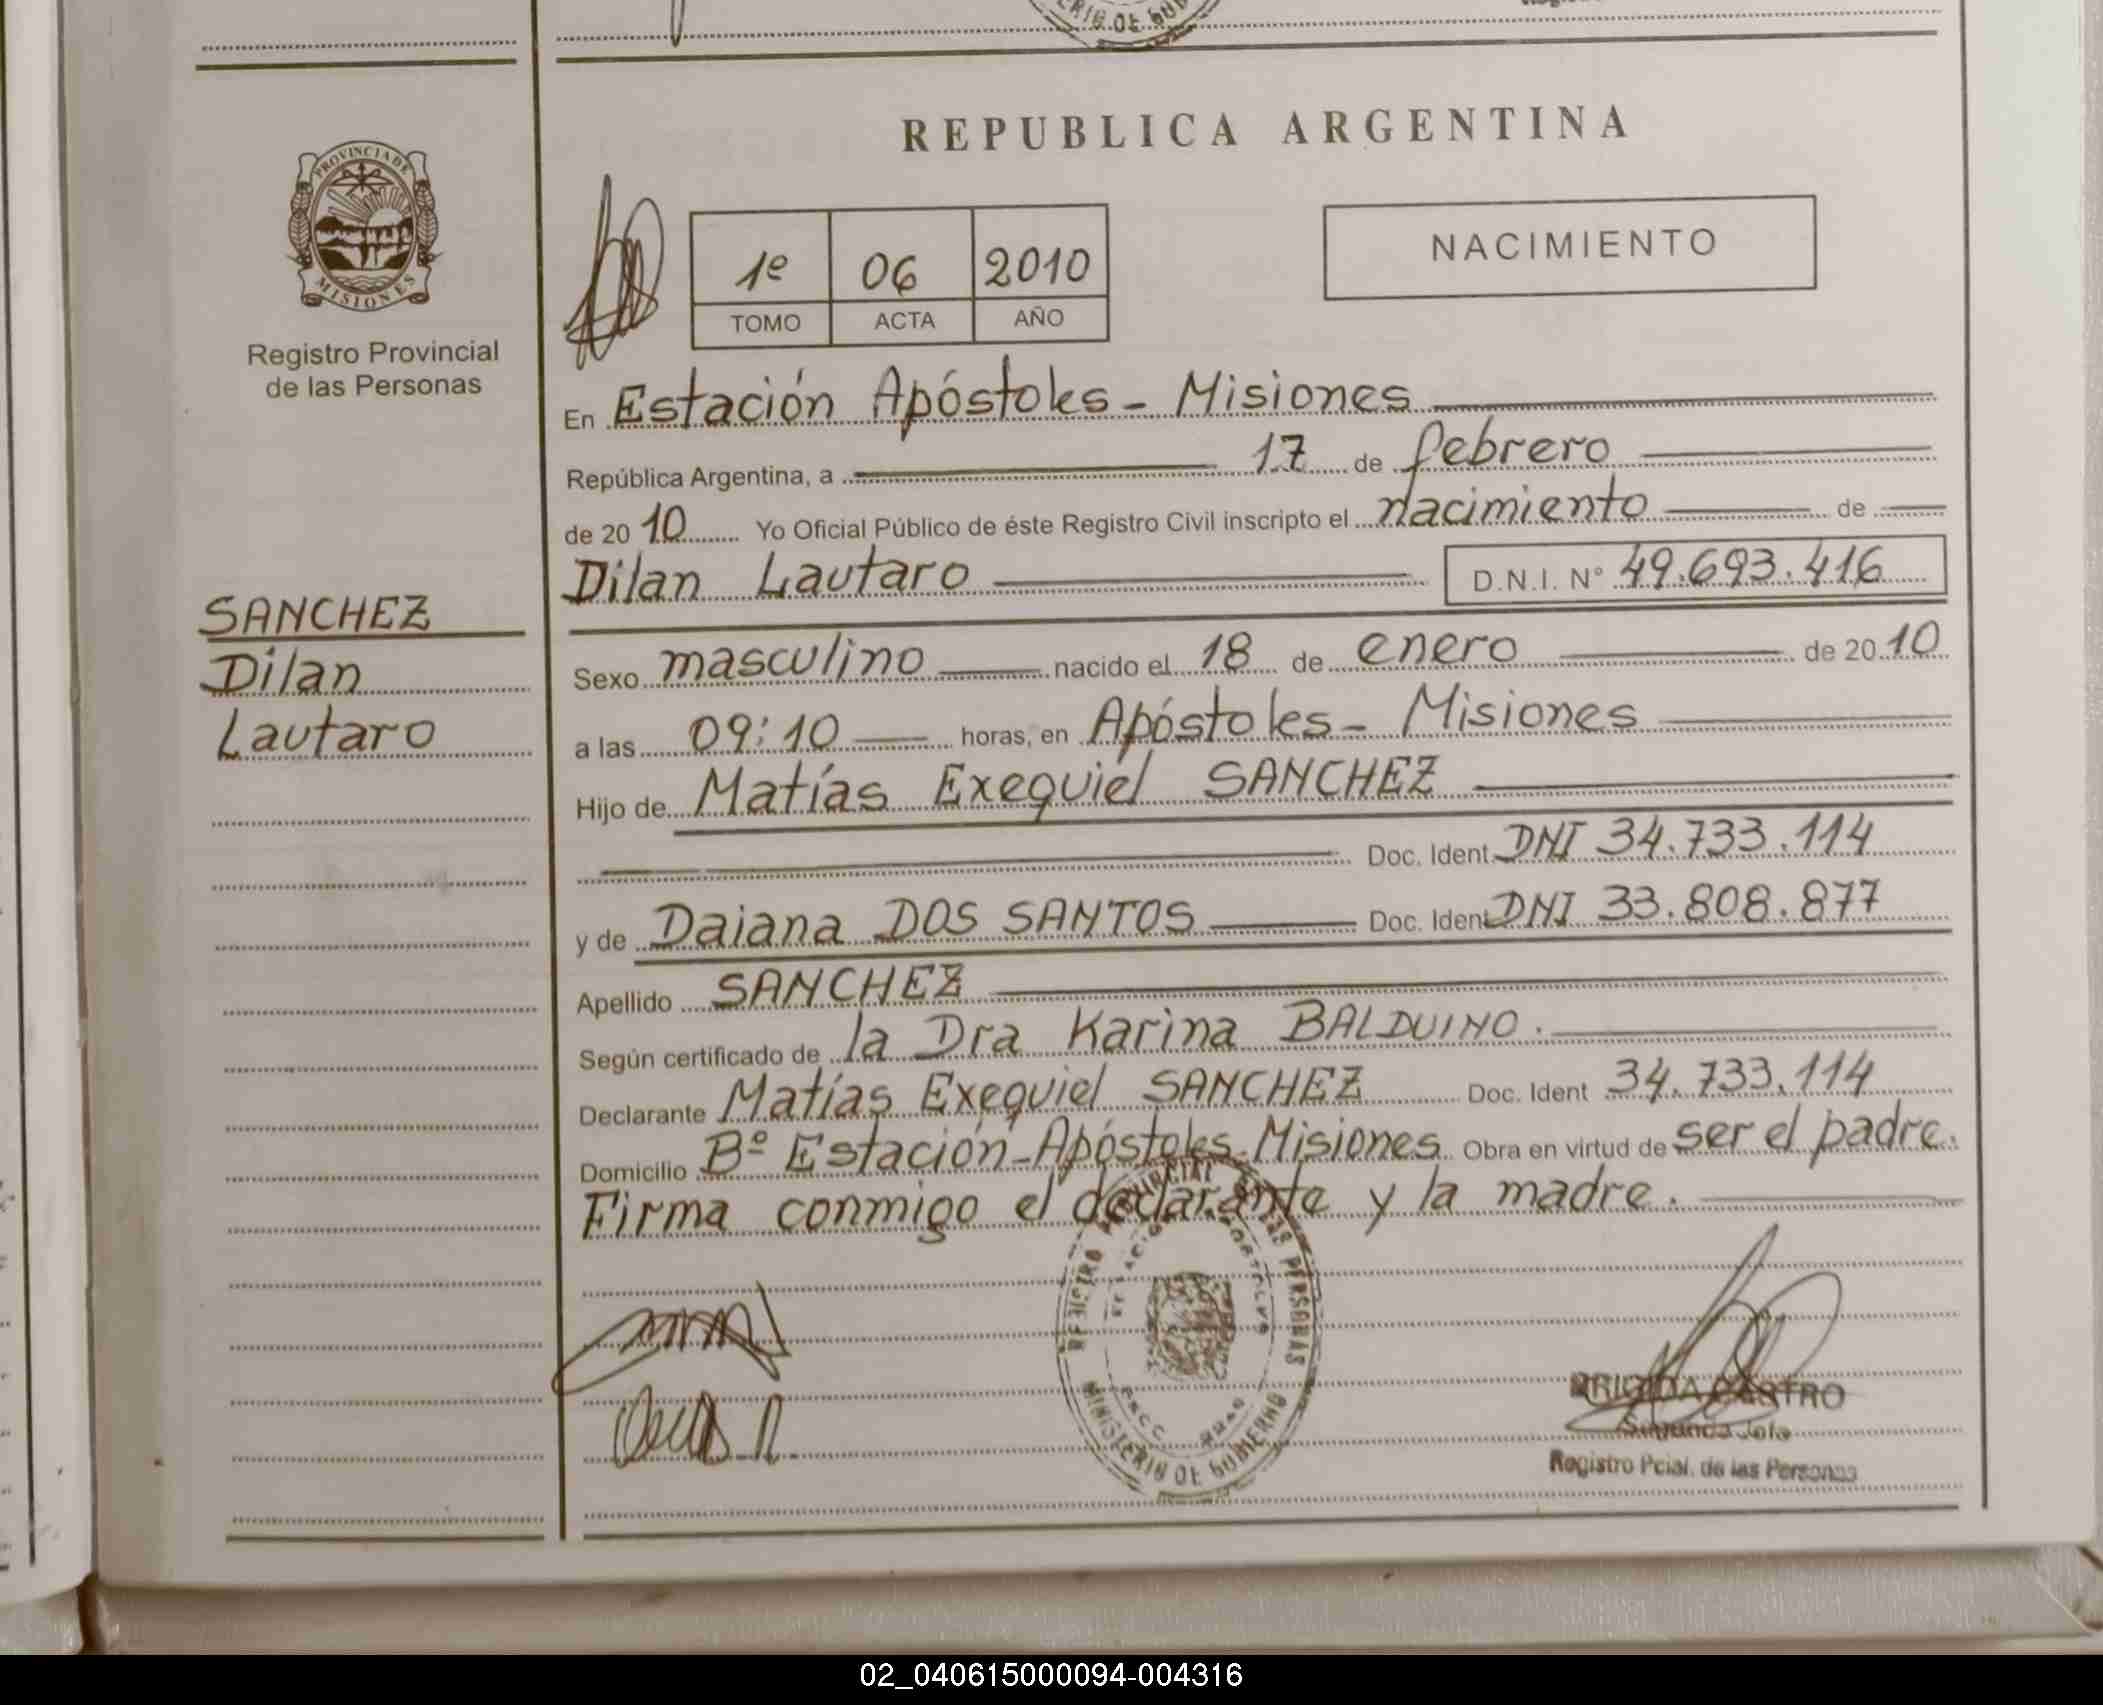 REPUBLICA ARGENTINA
PROVINCIA DE
MISIONES
Registro Provincial
de las Personas
1º 06 2010
TOMO ACTA AÑO
NACIMIENTO
En Estación Apóstoles - Misiones
República Argentina, a 17 de febrero
de 2010 Yo Oficial Público de éste Registro Civil inscripto el nacimiento de
Dilan Lautaro D.N.I. N° 49.693.416
SANCHEZ
Dilan
Lautaro
Sexo masculino nacido el 18 de enero de 2010
a las 09:10 horas, en Apóstoles - Misiones
Hijo de Matías Exequiel SANCHEZ
Doc. Ident. DNI 34.733.114
y de Daiana DOS SANTOS Doc. Ident DNI 33.808.877
Apellido SANCHEZ
Según certificado de la Dra Karina BALDUINO.
Declarante Matías Exequiel SANCHEZ Doc. Ident 34.733.114
Domicilio Bº Estación - Apóstoles - Misiones Obra en virtud de ser el padre.
Firma conmigo el declarante y la madre.
MINISTERIO DE GOBIERNO
BRIGIDA CASTRO
Segunda Jefa
Registro Pcial. de las Personas
02_040615000094-004316